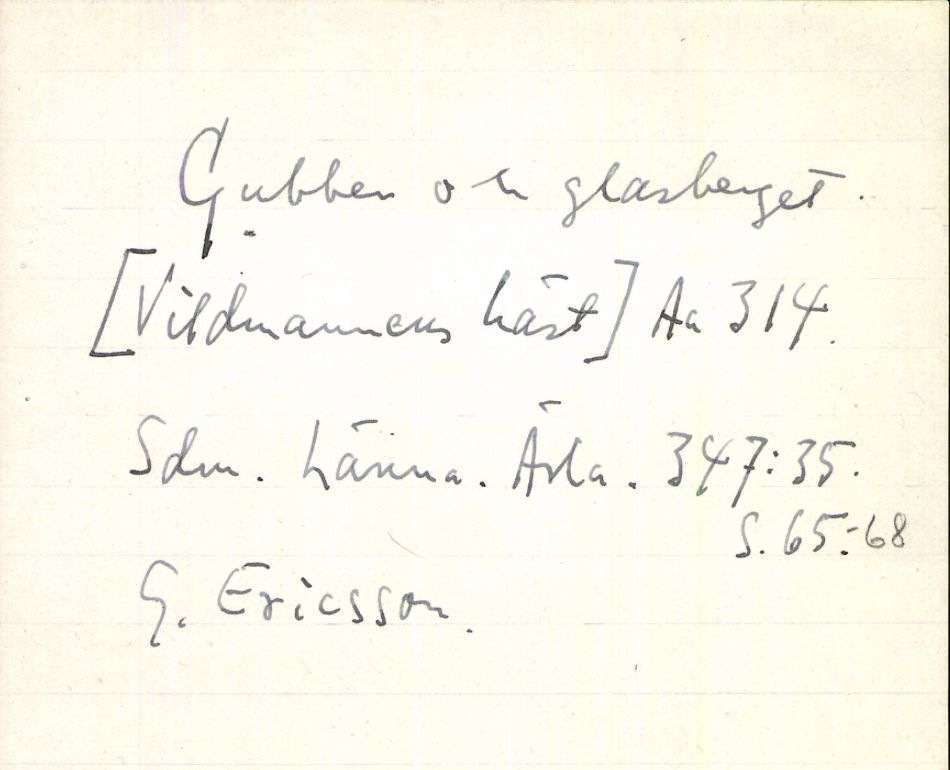 Gubben o h glasberget.
[Vildmannens häst] Aa 314.
Sdm. Länna. Ärla. 347:35.
S. 65-68
G. Ericsson.